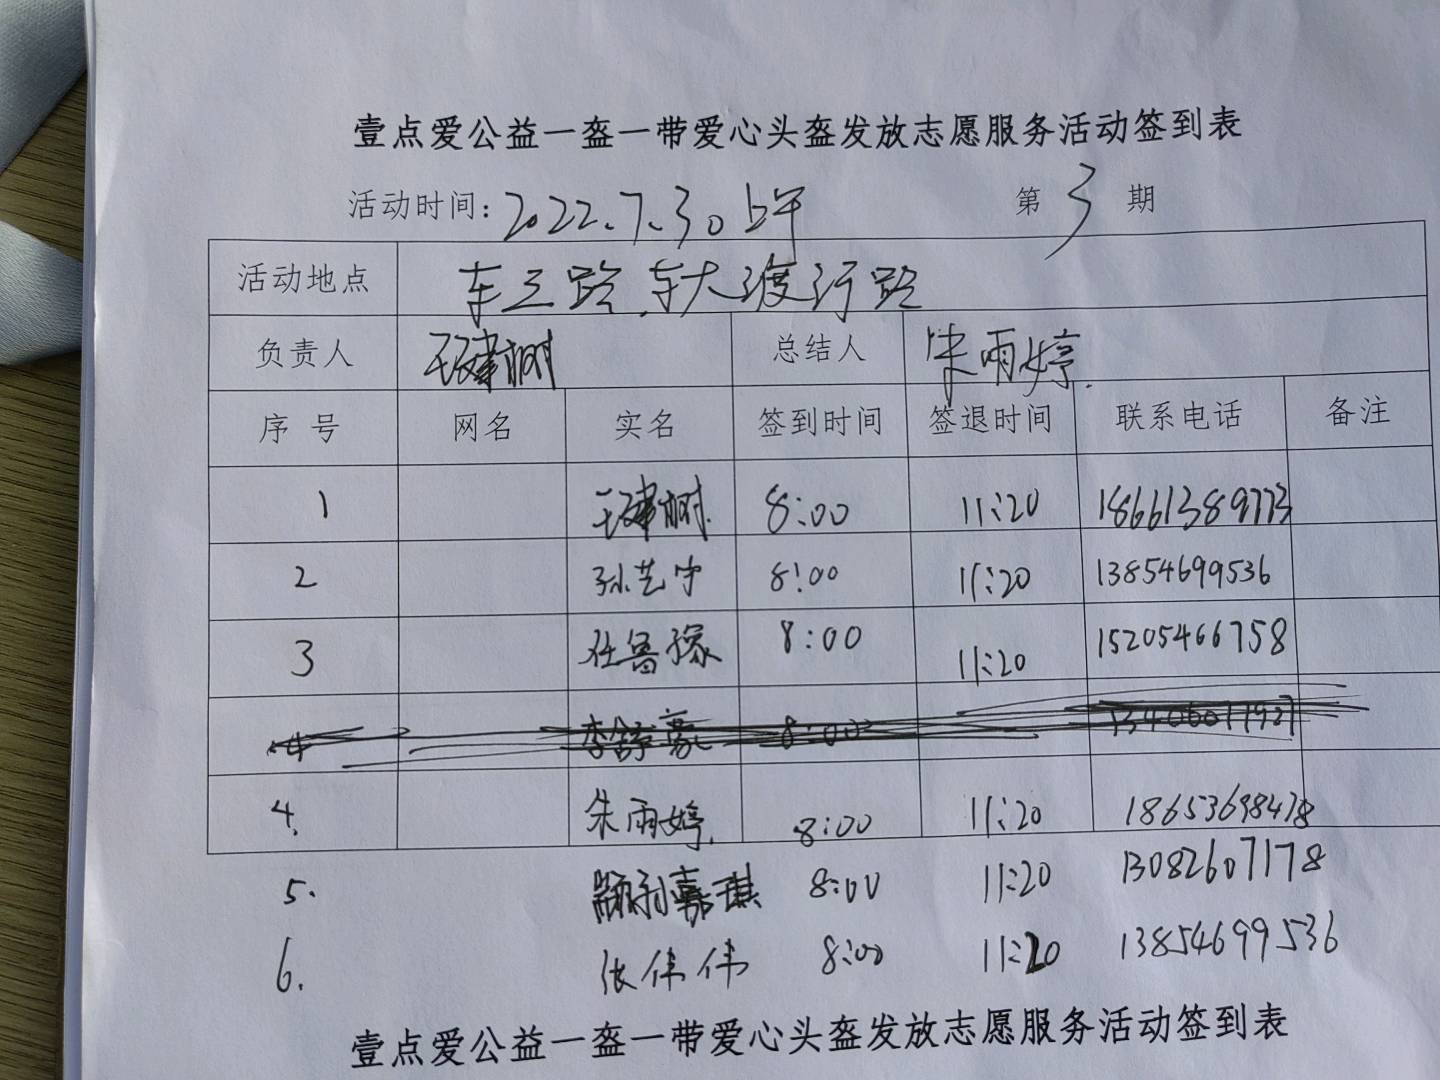 壹点爱公益一盔一带爱心头盔发放志愿服务活动签到表
活动时间：2022.7.30上午 第3期
活动地点 东三路、东大渡河路
负责人 王建树 总结人 朱雨婷
序号 网名 实名 签到时间 签退时间 联系电话 备注
1 王建树 8:00 11:20 18661389773
2 孙艺宁 8:00 11:20 13854699536
3 杜鲁豫 8:00 11:20 15205466758
4 8:00
4. 朱雨婷 8:00 11:20 18653698478
5. 嘉琪 8:00 11:20 13082607178
6. 张伟伟 8:00 11:20 13854699536
壹点爱公益一盔一带爱心头盔发放志愿服务活动签到表